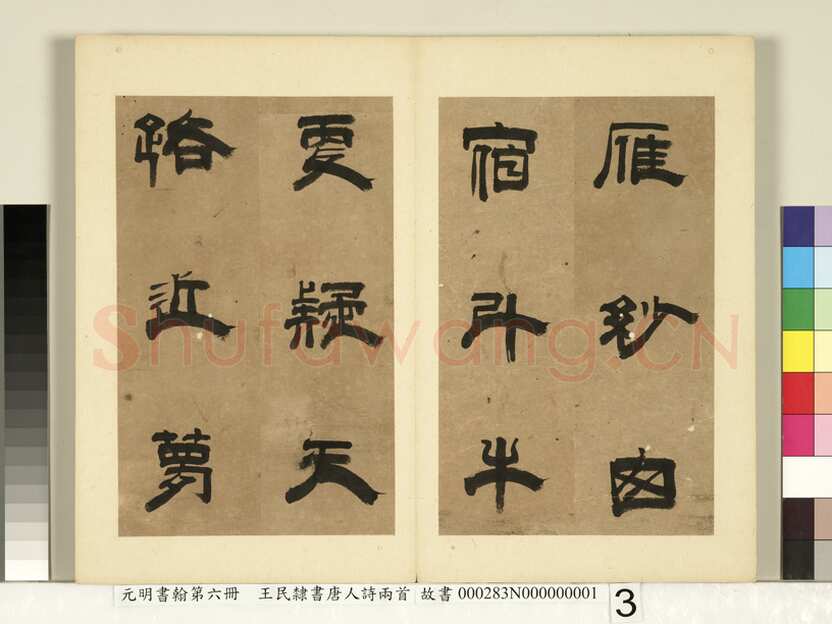 雁紗囪
宿斗牛
更疑天
路近夢
Shufawang.CN
元明書翰第六冊 王民隸書唐人詩兩首 故書 000283N000000001
3